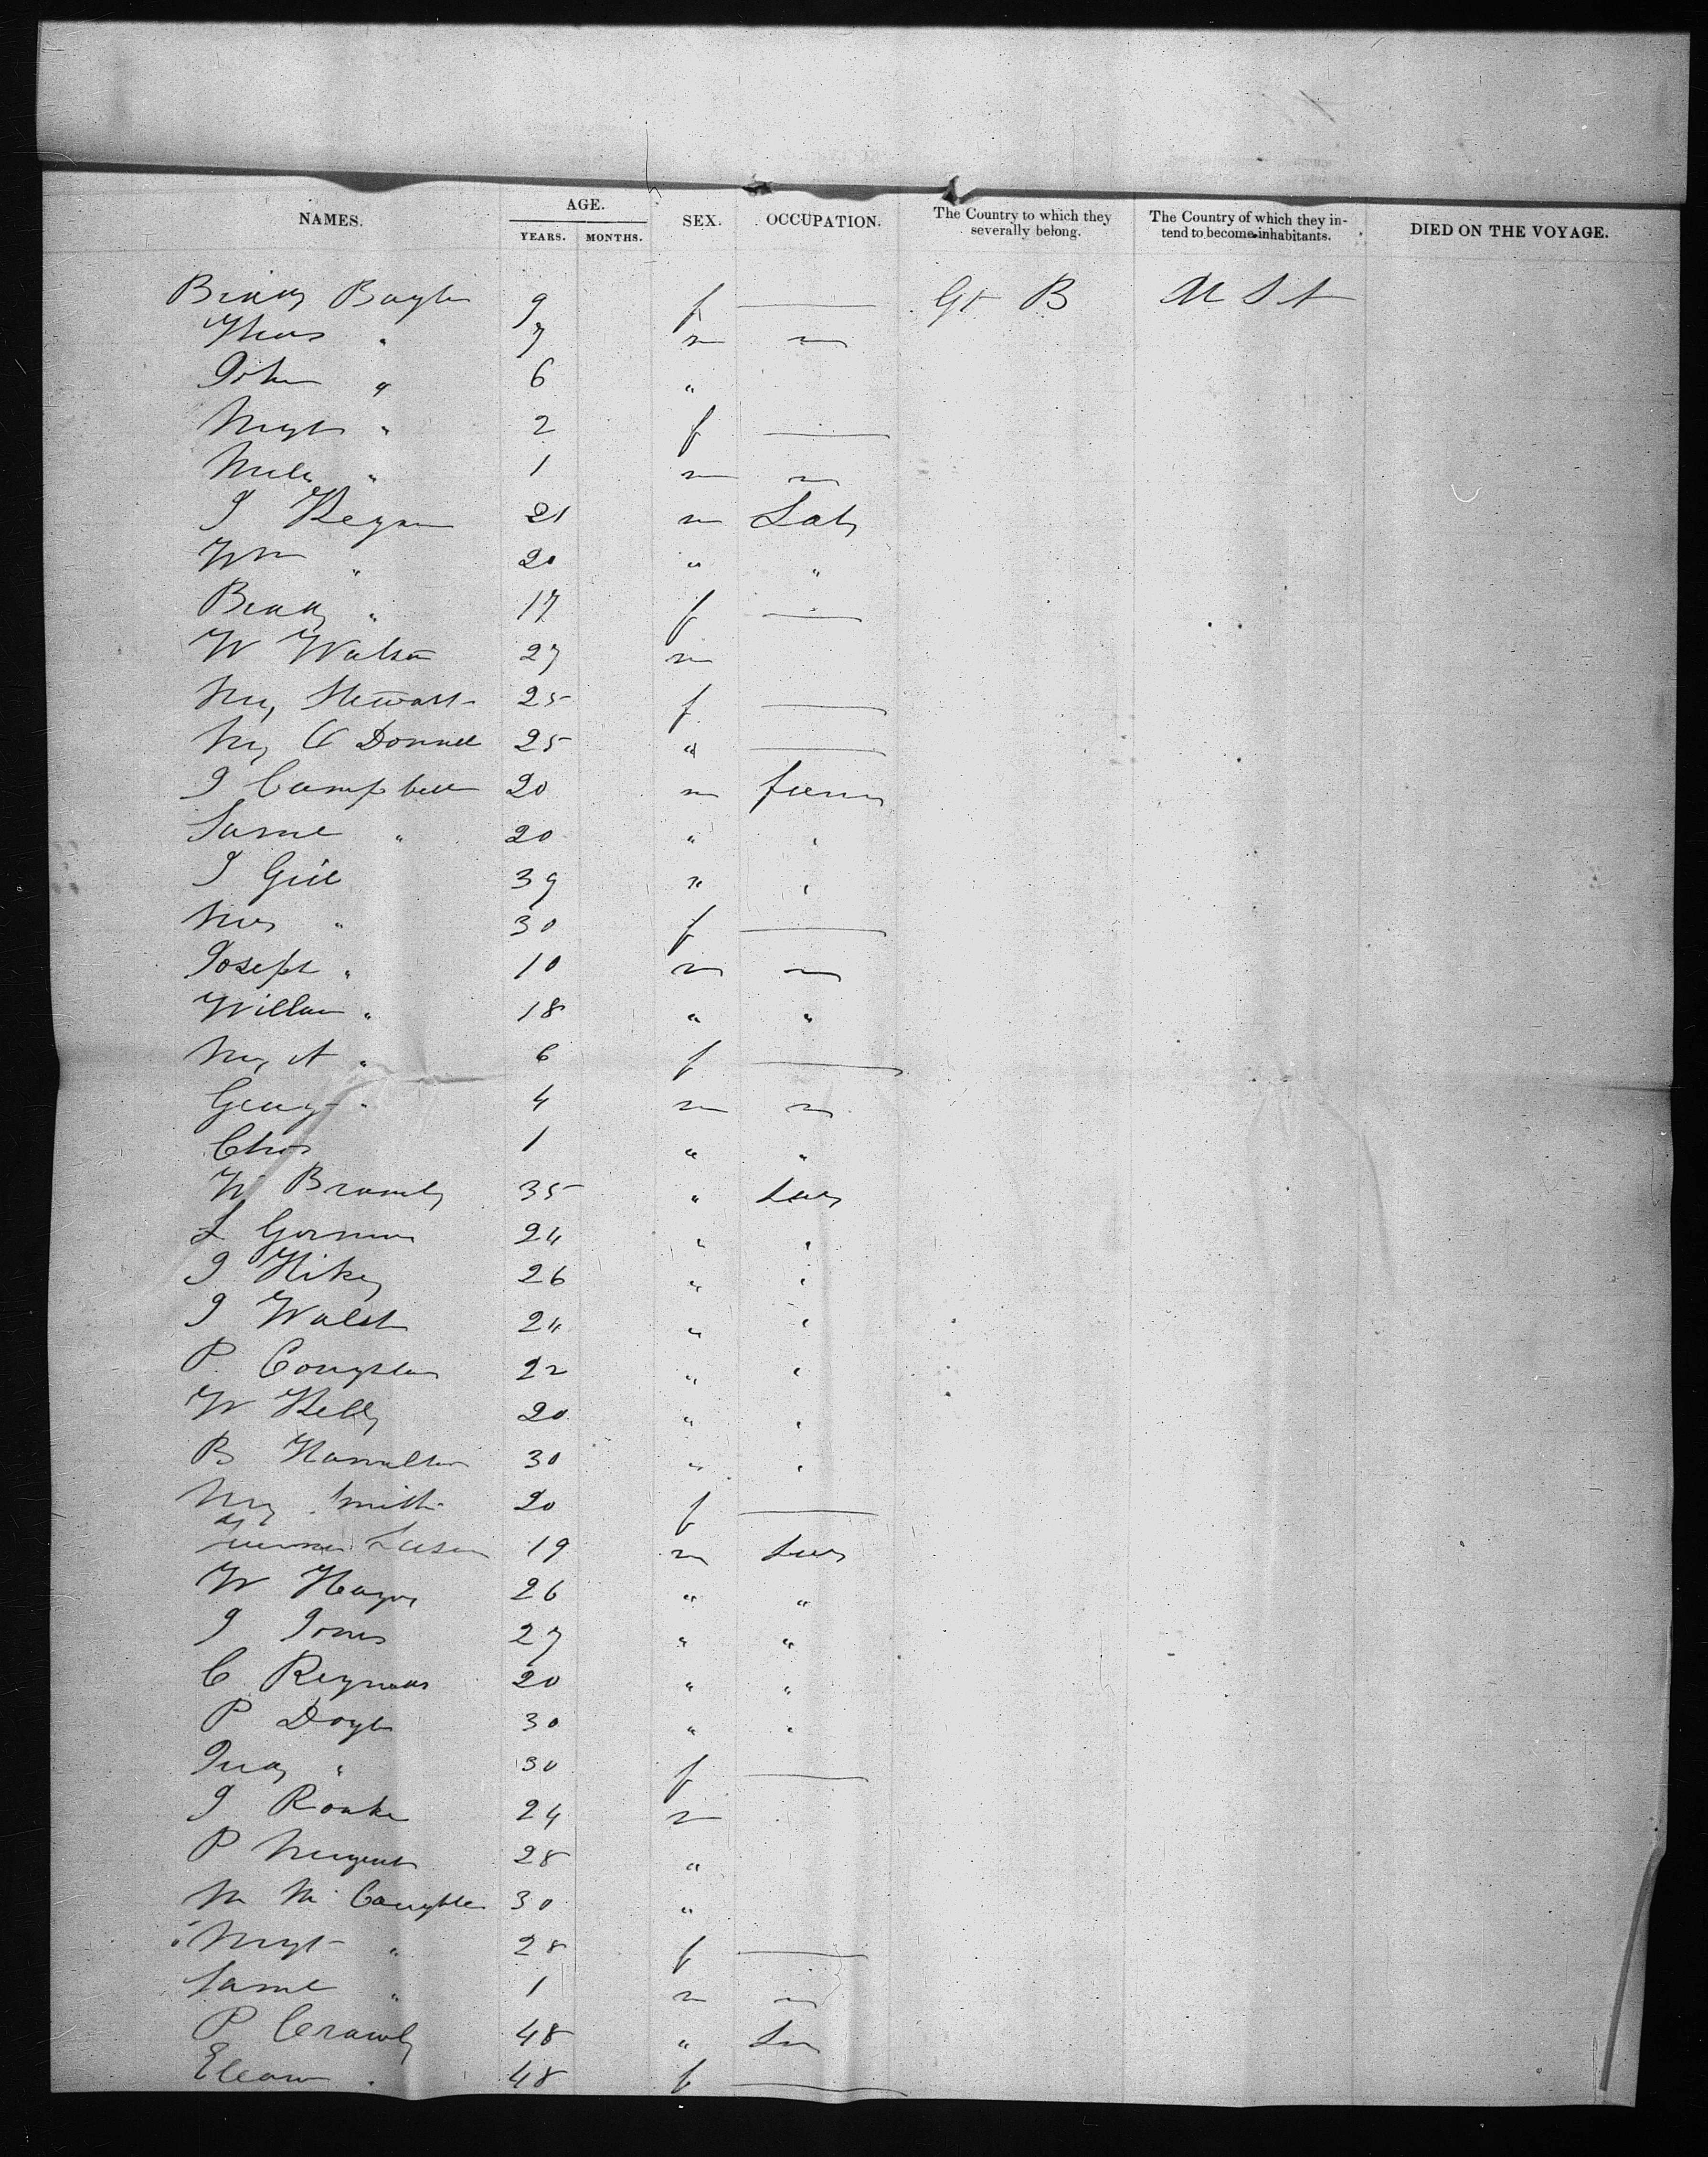 NAMES. AGE. YEARS. MONTHS. SEX. OCCUPATION. The Country to which they severally belong. The Country of which they intend to become inhabitants. DIED ON THE VOYAGE.
Boyle 9 f — Gt B U S A
Thos " 7 m
John " 6 "
Mgt " 2 f —
" 1 m
J Regan 21 m Lab
Wm " 20 " "
" 17 f —
W Watson 27 m
My Stewart 25 f —
My O Donnell 25 " —
J Campbell 20 m farmer
Saml " 20 " "
J Gill 39 " "
Mrs " 30 f —
Joseph " 10 m
William " 18 " "
My A " 6 f —
Georg " 4 m
Chas 1 " "
W 35 " Lab
L Gorman 24 " "
J Hikey 26 " "
J Walsh 24 " "
P Coughlan 22 " "
W Kelly 20 " "
B Hamilton 30 " "
My Smith 20 f —
19 m Lab
W Hayes 26 " "
J Jones 27 " "
C Reynolds 20 " "
P Doyle 30 " "
Judy " 30 f —
J Rourke 24 m
P Nugent 28 "
M Mc 30 "
Mgt " 28 f —
Saml " 1 m
P Crawly 48 "
48 f —